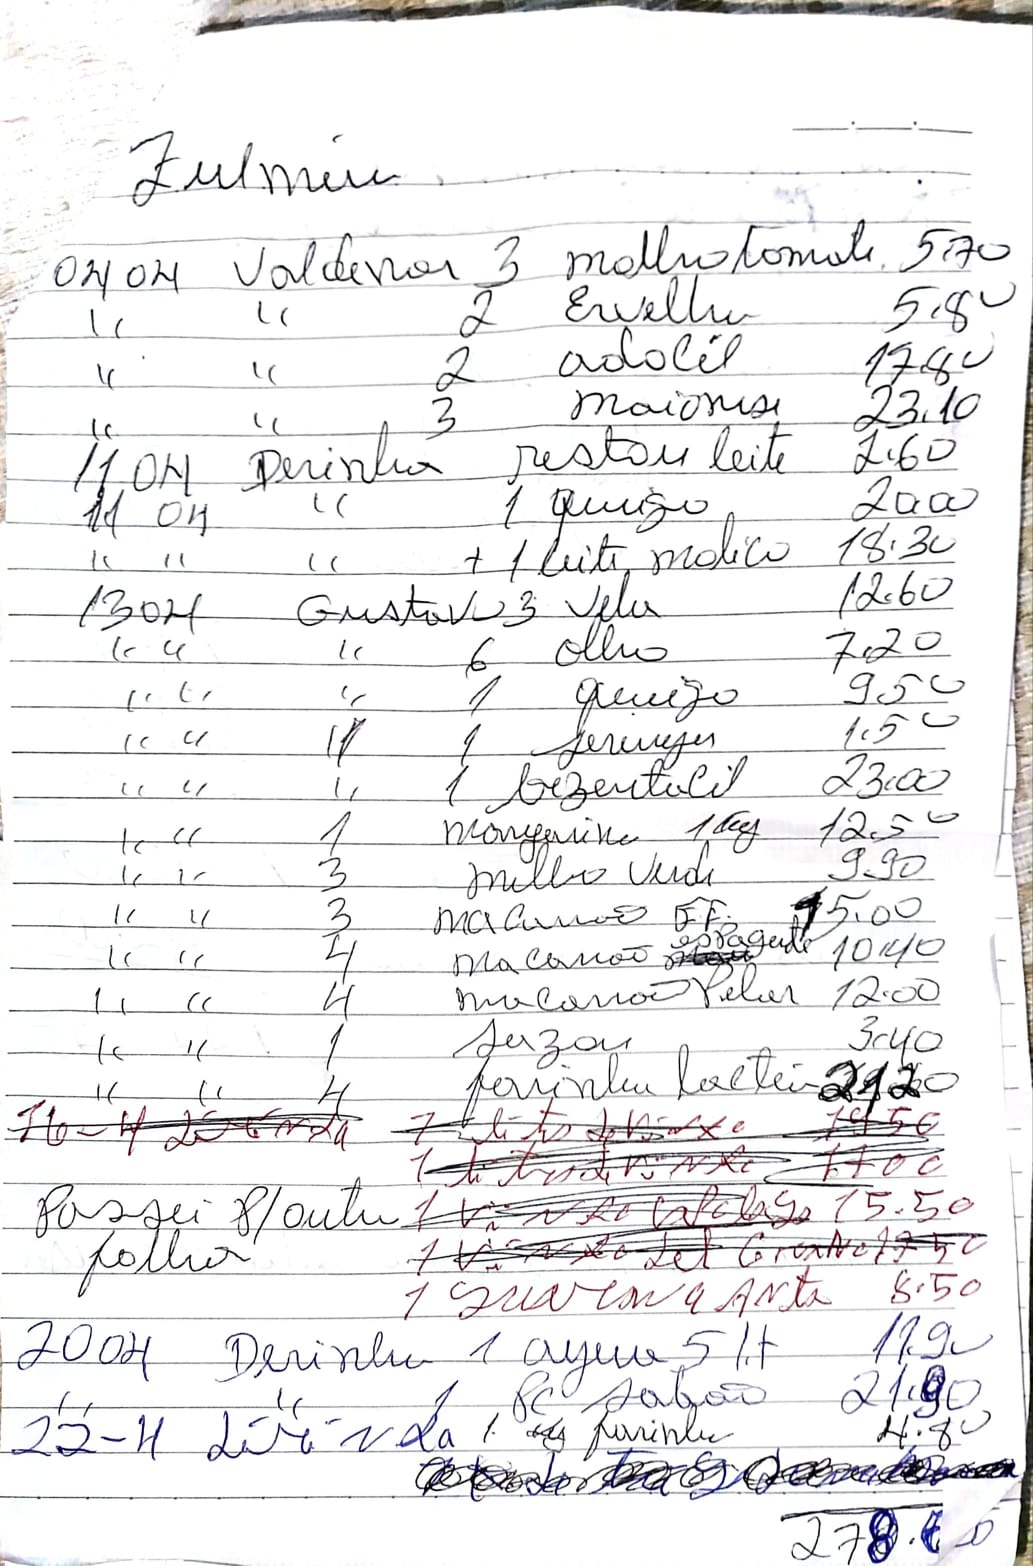 Zulmira
04 04 Valdenor 3 molho tomate 5.70
" " 2 Ervilha 5.80
" " 2 adocil 17.80
" " 3 maionese 23.10
11 04 Derinha restou leite 2.60
11 04 " 1 queijo 20.00
" " " + 1 leite molico 18.30
13 04 Gustavo 3 vela 12.60
" " " 6 olho 7.20
" " " 1 queijo 9.50
" " " 1 seringa 1.50
" " " 1 bezentacil 23.00
" " 1 margarina 1 kg 12.50
" " 3 milho verde 9.90
" " 3 macarrão FF. 15.00
" " 4 macarrão espaguete 10.40
" " 4 macarrão 12.00
" " 1 sazon 3.40
" " 4 farinha lactea
16-4 7 19 50
1 17 00
Passei p/outra 1 15.50
folha 1 17 50
1 8.50
20 04 Derinha 1 agua 5 lt 11.90
" " 1 pc sabão 21.90
22-4 1 kg farinha 4.80
278.